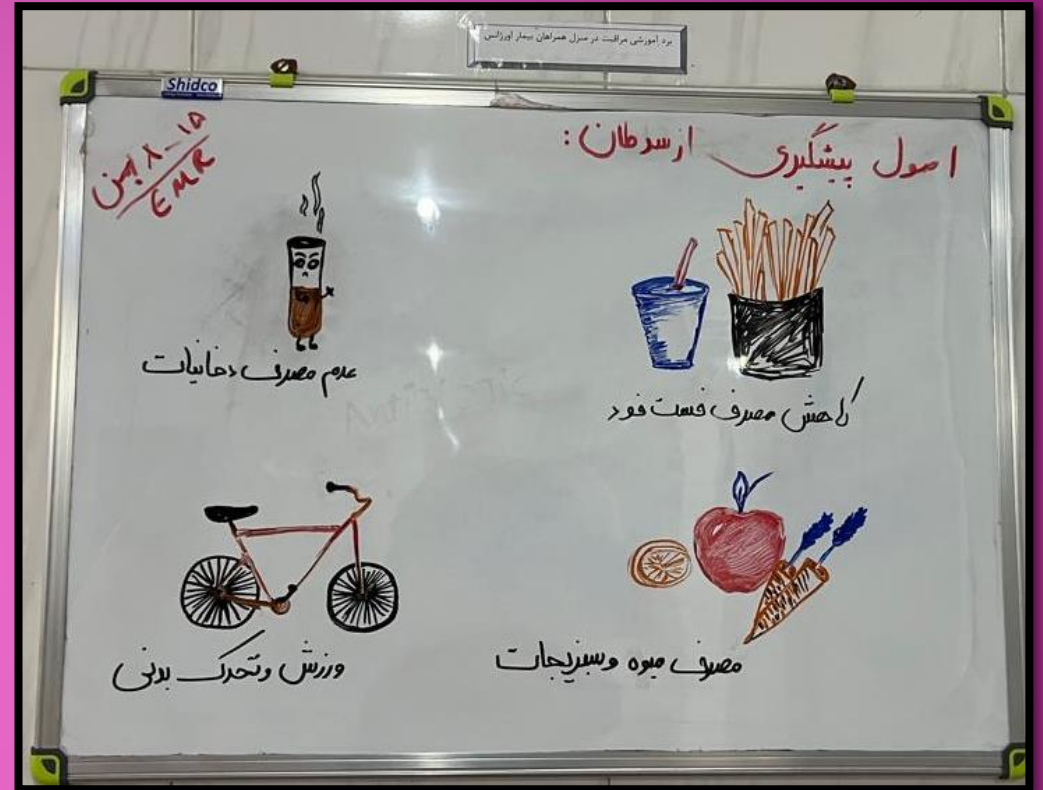 برد آموزشی مراقبت در منزل همراهان بیمار اورژانس
Shidco
اصول پیشگیری از سرطان:
۸-۱۵ بهمن
EMR
عدم مصرف دخانیات
کاهش مصرف فست فود
ورزش و تحرک بدنی
مصرف میوه و سبزیجات